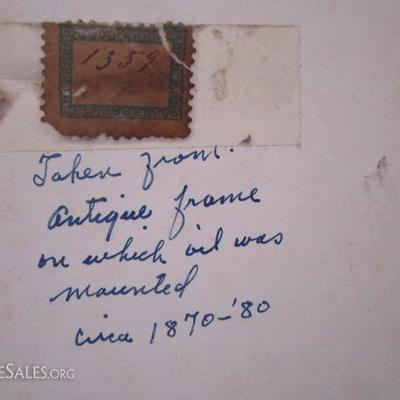 1359
Taken from:
Antique frame
on which oil was
mounted
circa 1870-'80
eSales.org